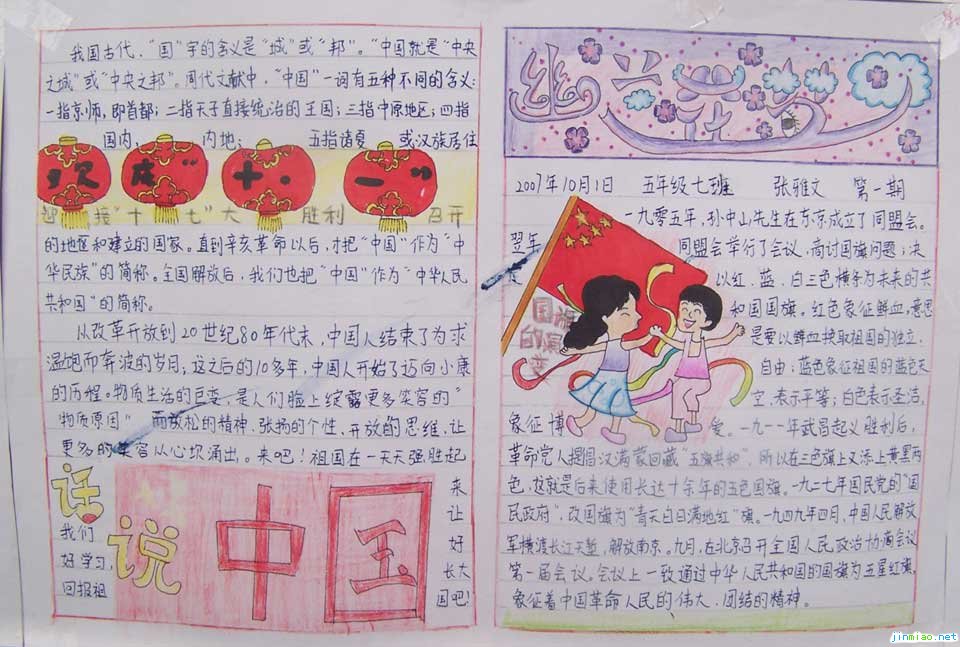 我国古代，"国"字的含义是"城"或"邦"。"中国就是"中央
之城"或"中央之邦"。周代文献中，"中国"一词有五种不同的含义：
一指京师，即首都；二指天子直接统治的王国；三指中原地区；四指
国内，内地；五指诸夏或汉族居住
"欢度"十·一"
迎接"十七"大胜利召开
的地区和建立的国家。直到辛亥革命以后，才把"中国"作为"中
华民族"的简称。全国解放后，我们也把"中国"作为"中华人民
共和国"的简称。
从改革开放到20世纪80年代末，中国人结束了为求
温饱而奔波的岁月；这之后的10多年，中国人开始了迈向小康
的历程。物质生活的巨变，是人们脸上绽露更多笑容的"
物质原因"而放松的精神、张扬的个性、开放的思维，让
更多的笑容从心坎涌出。来吧！祖国在一天天强胜起
来
让我们
好好学习，
长大回报祖国吧！
话说中国
2007年10月1日 五年级七班 张雅文 第一期
一九零五年，孙中山先生在东京成立了同盟会。
翌年同盟会举行了会议，商讨国旗问题；决
定以红、蓝、白三色横条为未来的共
和国国旗。红色象征鲜血，意思
是要以鲜血换取祖国的独立，
自由；蓝色象征祖国的蓝色天
空，表示平等；白色表示圣洁，
象征博爱。一九一一年武昌起义胜利后，
革命党人提倡汉满蒙回藏"五族共和"，所以在三色旗上又添上黄黑两
色，这就是后来使用长达十余年的五色国旗。一九二七年国民党的"国
民政府"，改国旗为"青天白日满地红"旗。一九四九年四月，中国人民解放
军横渡长江天堑，解放南京。九月，在北京召开全国人民政治协商会议
第一届会议。会议上一致通过中华人民共和国的国旗为五星红旗，
象征着中国革命人民的伟大、团结的精神。
国旗
的演
变
jinmiao.net